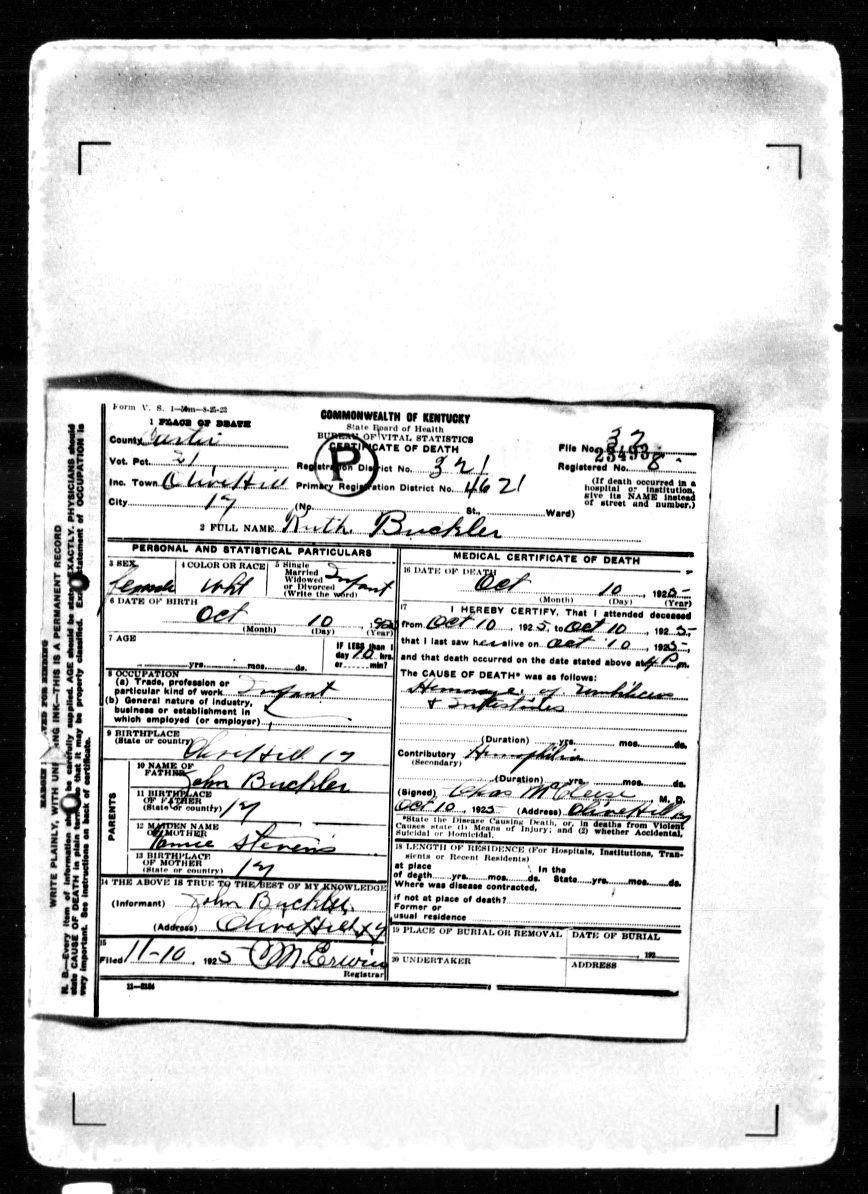 Form V. S. 1—50m—8-25-23
COMMONWEALTH OF KENTUCKY
State Board of Health
BUREAU OF VITAL STATISTICS
CERTIFICATE OF DEATH
P
1 PLACE OF DEATH
County Carter
Vot. Pct. 31
Inc. Town Olive Hill
City Ky
Registration District No. 321
Primary Registration District No. 4621
(No. St., Ward)
File No. 37
23493
Registered No. 8
(If death occurred in a
hospital or institution,
give its NAME instead
of street and number.)
2 FULL NAME Ruth Buckler
PERSONAL AND STATISTICAL PARTICULARS
3 SEX
female
4 COLOR OR RACE
wht
5 Single
Married
Widowed
or Divorced
(Write the word)
Infant
6 DATE OF BIRTH
Oct 10, 192
(Month) (Day) (Year)
7 AGE
yrs. mos. ds.
IF LESS than 1
day 10 hrs.
or min?
8 OCCUPATION
(a) Trade, profession or
particular kind of work Infant
(b) General nature of industry,
business or establishment in
which employed (or employer)
9 BIRTHPLACE
(State or country) Olive Hill Ky
PARENTS
10 NAME OF
FATHER John Buckler
11 BIRTHPLACE
OF FATHER
(State or country) Ky
12 MAIDEN NAME
OF MOTHER
Stevens
13 BIRTHPLACE
OF MOTHER
(State or country) Ky
14 THE ABOVE IS TRUE TO THE BEST OF MY KNOWLEDGE
(Informant) John Buckler
(Address) Olive Hill Ky
15
Filed 11-10, 1925 CM Erwin
Registrar
11—3184
MEDICAL CERTIFICATE OF DEATH
16 DATE OF DEATH
Oct 10, 1925
(Month) (Day) (Year)
17 I HEREBY CERTIFY, That I attended deceased
from Oct 10, 1925, to Oct 10, 1925
that I last saw her alive on Oct 10, 1925,
and that death occurred on the date stated above at 4 P m.
The CAUSE OF DEATH* was as follows:
Hemorage of Umbilicus
+ Intestines
(Duration) yrs. mos. ds.
Contributory Hemophilia
(Secondary)
(Duration) yrs. mos. ds.
(Signed) Chas McCleese M. D.
Oct 10, 1925 (Address) Olive Hill Ky
*State the Disease Causing Death, or, in deaths from Violent
Causes state (1) Means of Injury; and (2) whether Accidental,
Suicidal or Homicidal.
18 LENGTH OF RESIDENCE (For Hospitals, Institutions, Tran-
sients or Recent Residents)
at place In the
of death yrs. mos. ds. State yrs. mos. ds.
Where was disease contracted,
if not at place of death?
Former or
usual residence
19 PLACE OF BURIAL OR REMOVAL
DATE OF BURIAL
192
20 UNDERTAKER
ADDRESS
WRITE PLAINLY, WITH INK—THIS IS A PERMANENT RECORD
N. B.—Every item of information be carefully supplied. AGE should be stated EXACTLY. PHYSICIANS should
state CAUSE OF DEATH in plain terms so that it may be properly classified. Exact statement of OCCUPATION is
very important. See instructions on back of certificate.